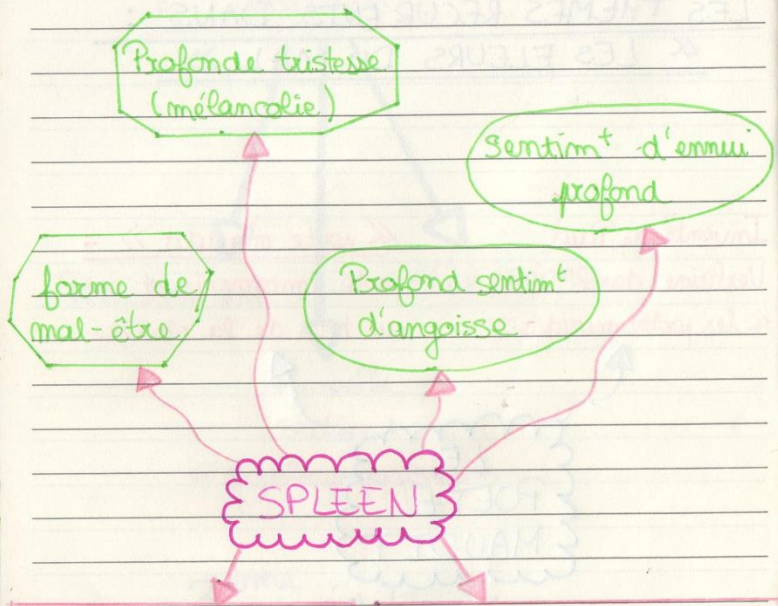 Profonde tristesse
(mélancolie)
sentim^t d'ennui
profond
forme de
mal-être
Profond sentim^t
d'angoisse
SPLEEN